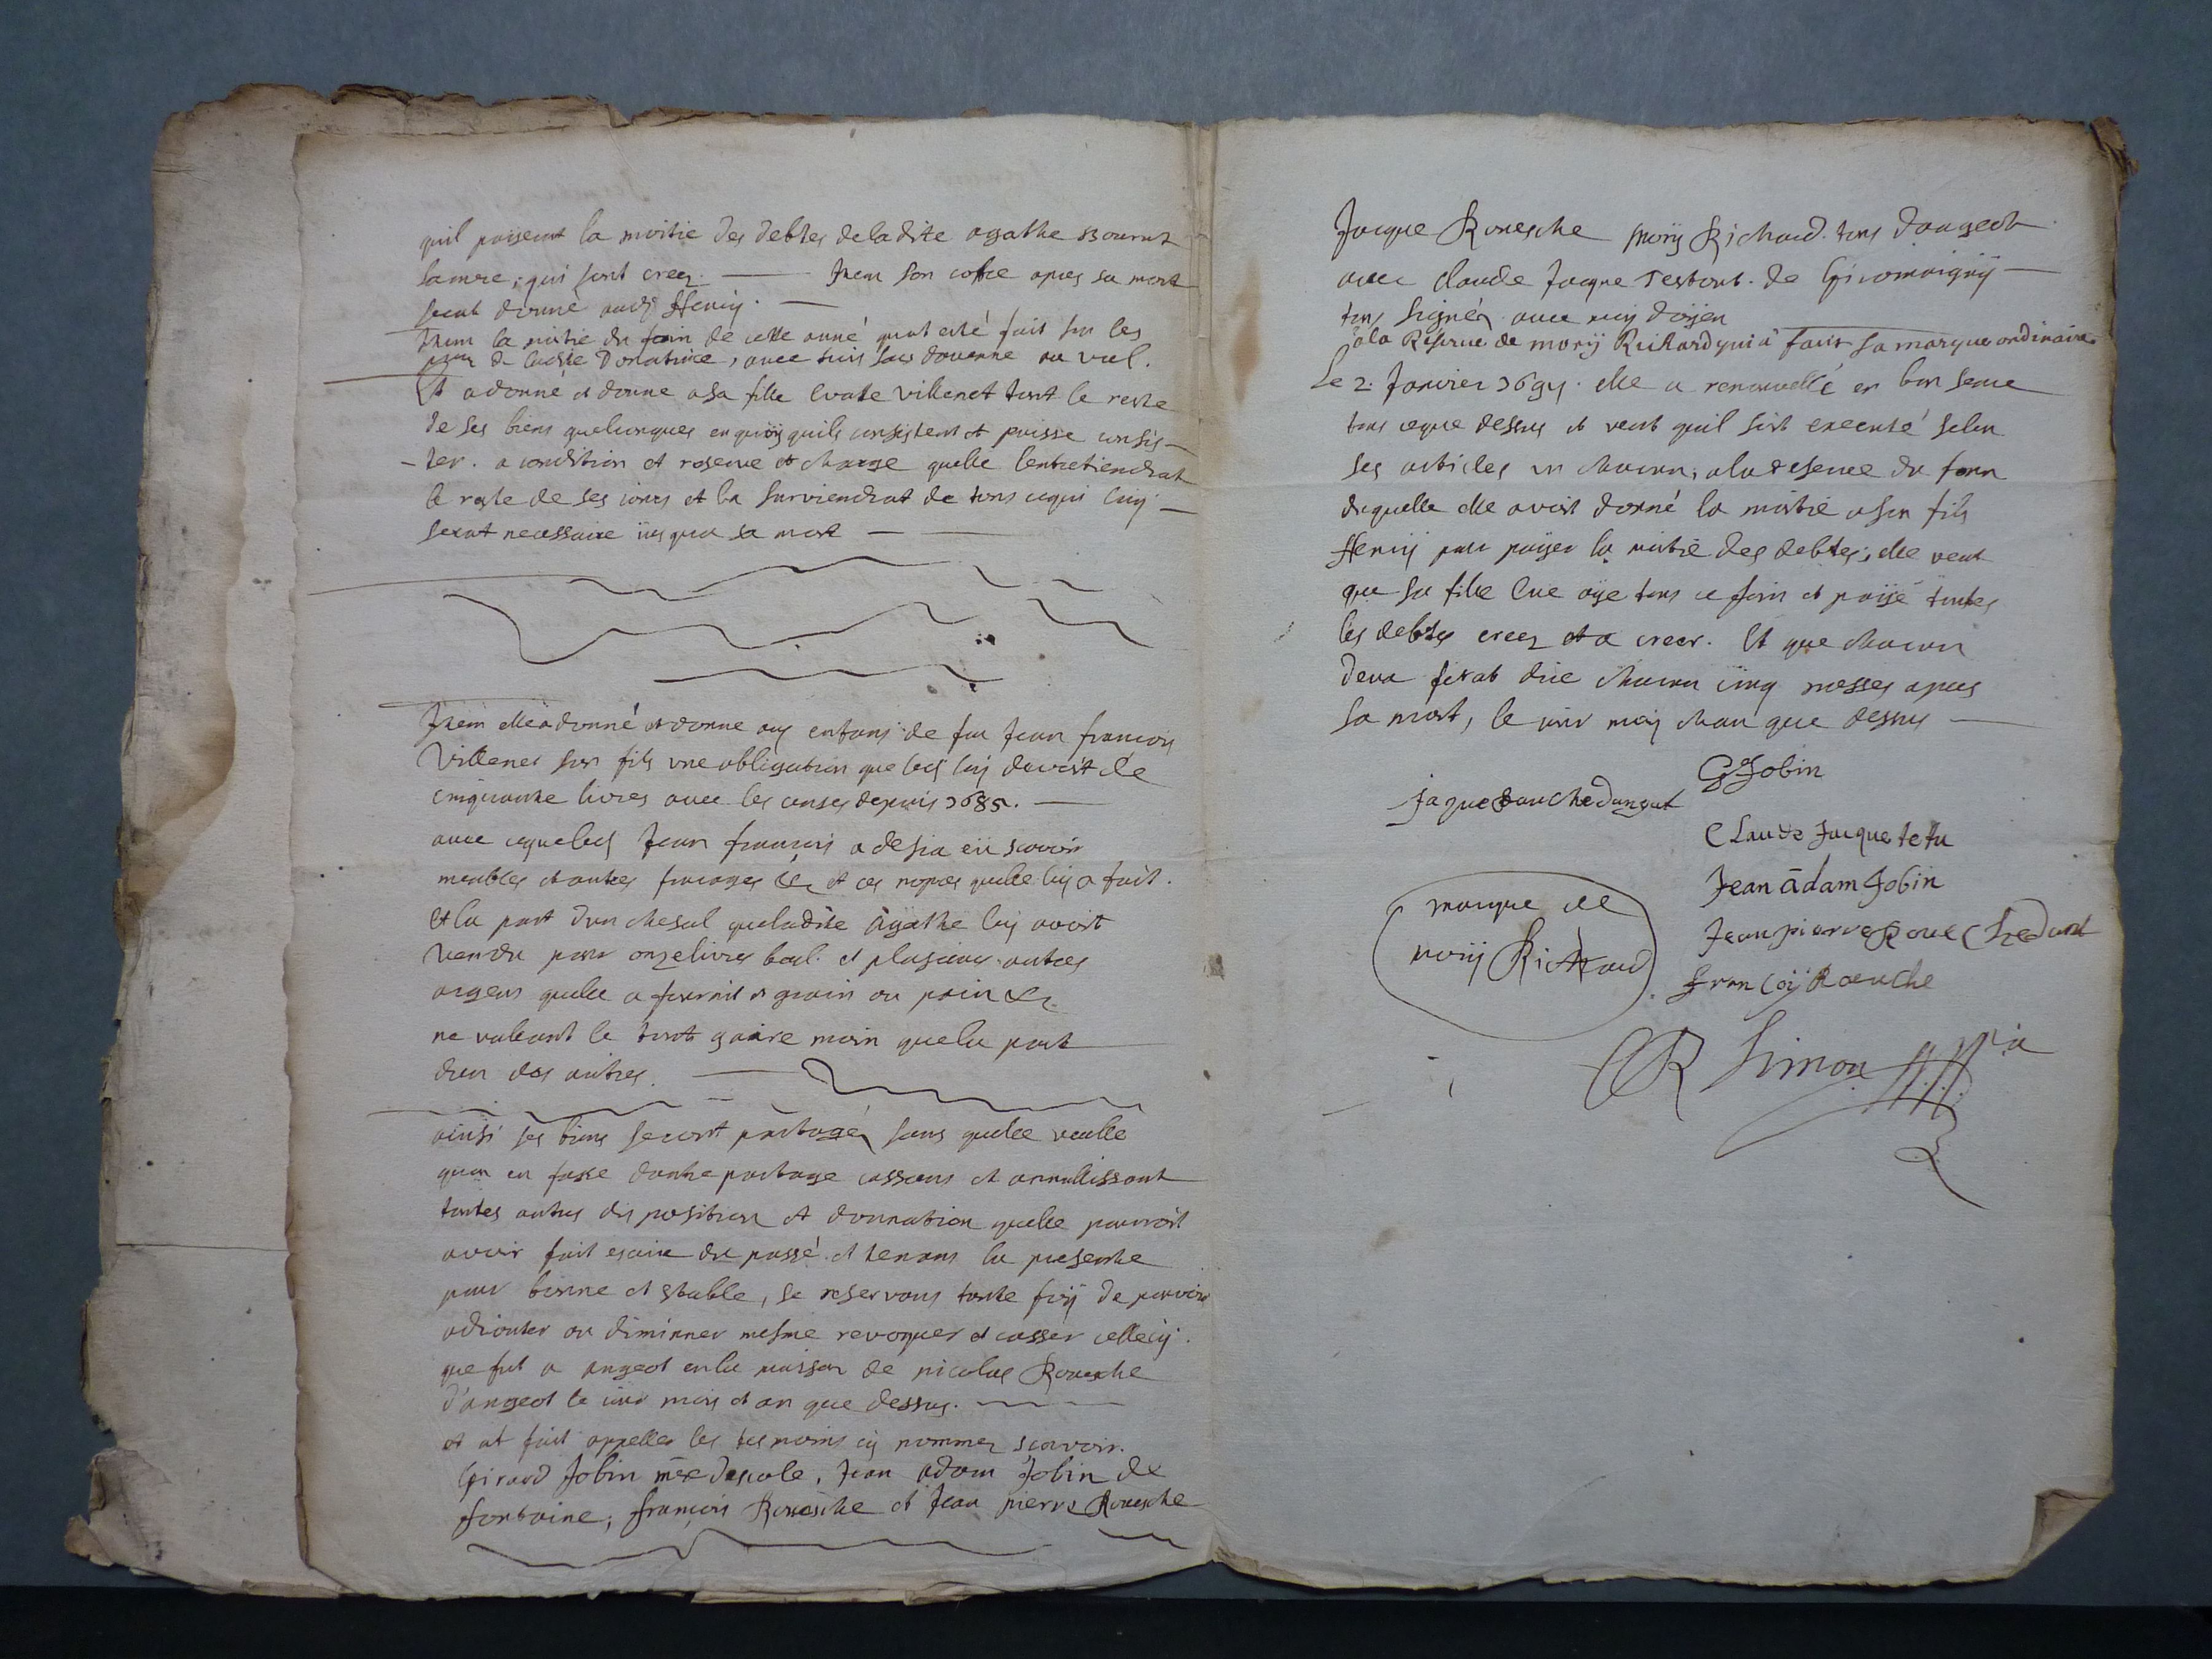 quil payerat la moitie des debtes de ladite agathe Bourut
sa mere, qui sont creez. Item son coffre apres sa mort
serat donné audj Henry.
Item la moitie du foin de cette anné quat esté fait sur les
prez de ladite Donatrice, avec trois sacs davenne au viel.
Et a donné et donne a sa fille Evatte Villenet tout le reste
de ses biens quelconques en quoÿ quils consistent et puisse consis-
-ter. a condition et reserve et charge quelle lentretiendrat
le reste de ses iours et la surviendrat de tous cequi luÿ
serat necessaire iusqua sa mort
Item elle a donné et donne aux enfans de feu Jean francois
Villenet son fils une obligation que ledj luy devoit de
cinquante livres avec les censes depuis 1685.
avec ceque ledj Jean francois a desia eü scavoir
meubles et autres fraiages &c et ces nopces quelle luy a fait.
Et la part dun cheval que ladite Agathe luy avoit
vendu pour onze livres basl. et plusieurs autres
argens quelle a fournit et grain ou pain &c
ne valeant le tout gaire moin que la part
dun des autres.
ainsi ses biens seront partagéz sans quelle veulle
quon en fasse dautre partage cassans et annullissant
toutes autres disposition et donnation quelle pourroit
avoir fait escrire du passé et tenans la presente
pour bonne et stable, se reservans toute foiÿ de pouvoir
adiouter ou diminuer mesme revoquer et casser cellecy.
que fut a angeot en la maison de nicolas Rouesche
d'angeot le iour mois et an que dessus.
et at fait appeller les tesmoins cy nommez scavoir.
Girard Jobin mre descole, Jean adam Jobin de
fontaine, françois Rouesche et Jean pierre Rouesche
Jacque Rouesche moriÿ Richard. tous dangeot
avec Claude Jacque Testout. de Giromaigny
tous signéz avec moy doÿen
a la Reserve de moriÿ Richard qui à fait sa marque ordinaire
Le 2. Janvier 1691. elle a renouvellé en bon sence
tous ceque dessus et veut quil soit executé selon
ses articles un chacun, a la reserve du foin
duquelle elle avoit donné la moitié a son fils
Henriÿ pour payer la moitié des debtes, elle veut
que sa fille Eve aÿe tous ce foin et payé toutes
les debtes creez et a creer. Et que chacun
deux ferat dire chacun cinq messes apres
sa mort, le iour mois et an que dessus
G Jobin
jaque Rauche dangeut
Claude Jacque tetu
Jean adam Jobin
Jean pierre Roueche dant
françoÿ Roeuche
marque de
moriÿ Richard
CR Simon